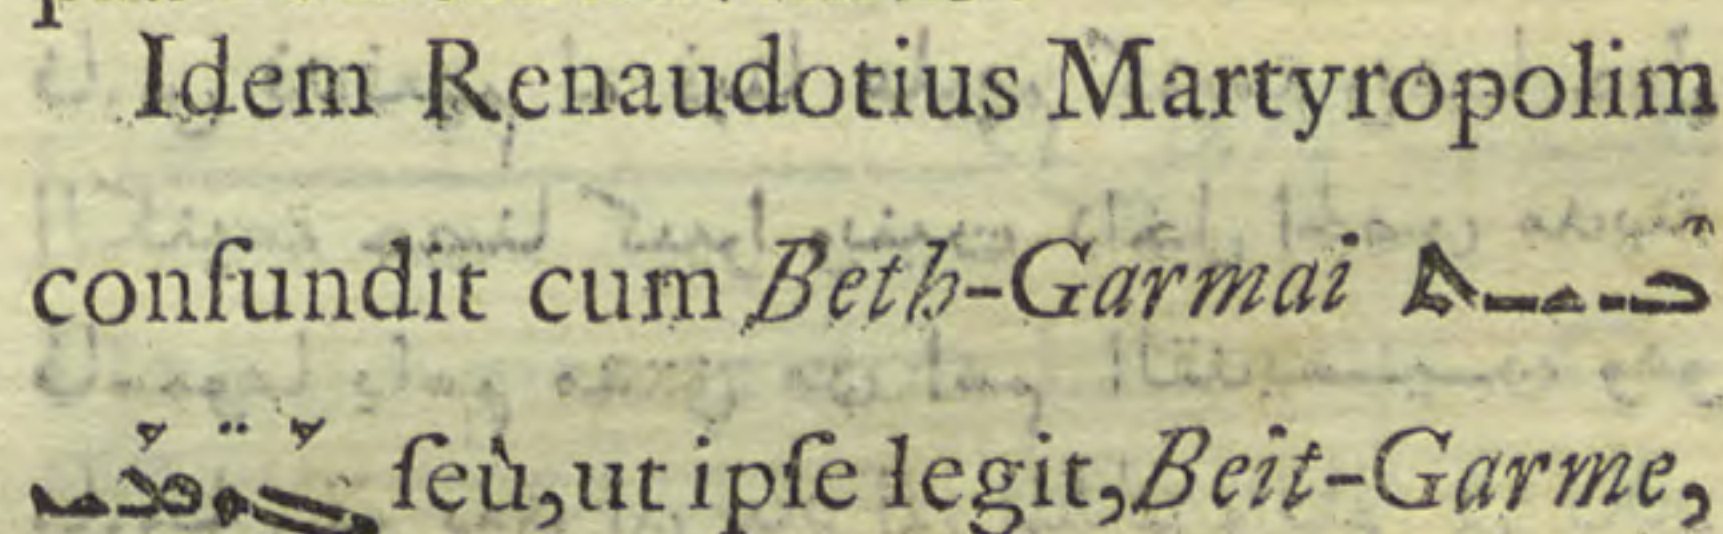 Idem Renaudotius Martyropolim
confundit cum Beth-Garmai ܒܝܬ
ܓܪ̈ܡܝ ſeù, ut ipſe legit, Beit-Garme,